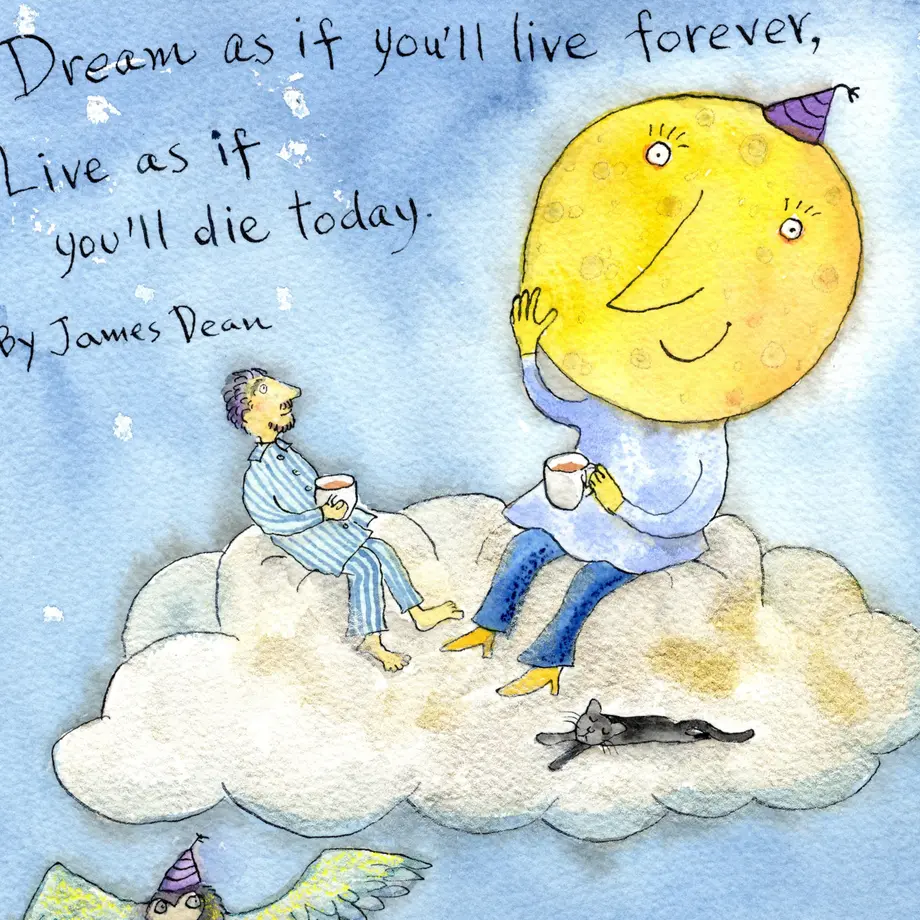 Dream as if you'll live forever,
Live as if
you'll die today.
By James Dean